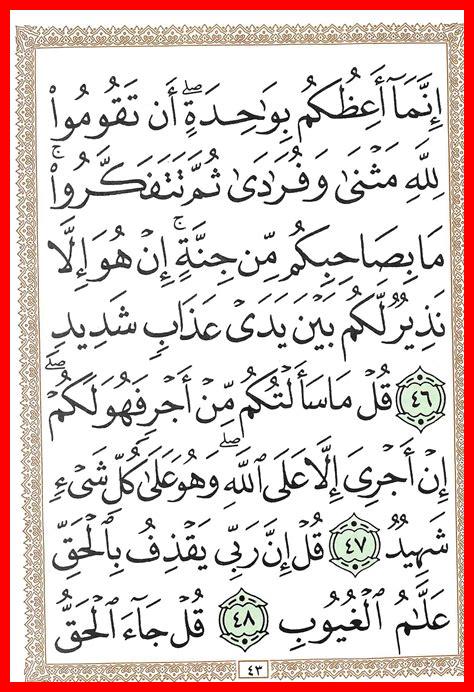 إِنَّمَآ أَعِظُكُم بِوَٰحِدَةٍۖ أَن تَقُومُوا۟
لِلَّهِ مَثْنَىٰ وَفُرَٰدَىٰ ثُمَّ تَتَفَكَّرُوا۟ۚ
مَا بِصَاحِبِكُم مِّن جِنَّةٍۚ إِنْ هُوَ إِلَّا
نَذِيرٌ لَّكُم بَيْنَ يَدَىْ عَذَابٍ شَدِيدٍ
٤٦ قُلْ مَا سَأَلْتُكُم مِّنْ أَجْرٍ فَهُوَ لَكُمْۖ
إِنْ أَجْرِىَ إِلَّا عَلَى ٱللَّهِۖ وَهُوَ عَلَىٰ كُلِّ شَىْءٍ
شَهِيدٌ ٤٧ قُلْ إِنَّ رَبِّى يَقْذِفُ بِٱلْحَقِّ
عَلَّٰمُ ٱلْغُيُوبِ ٤٨ قُلْ جَآءَ ٱلْحَقُّ
٤٣